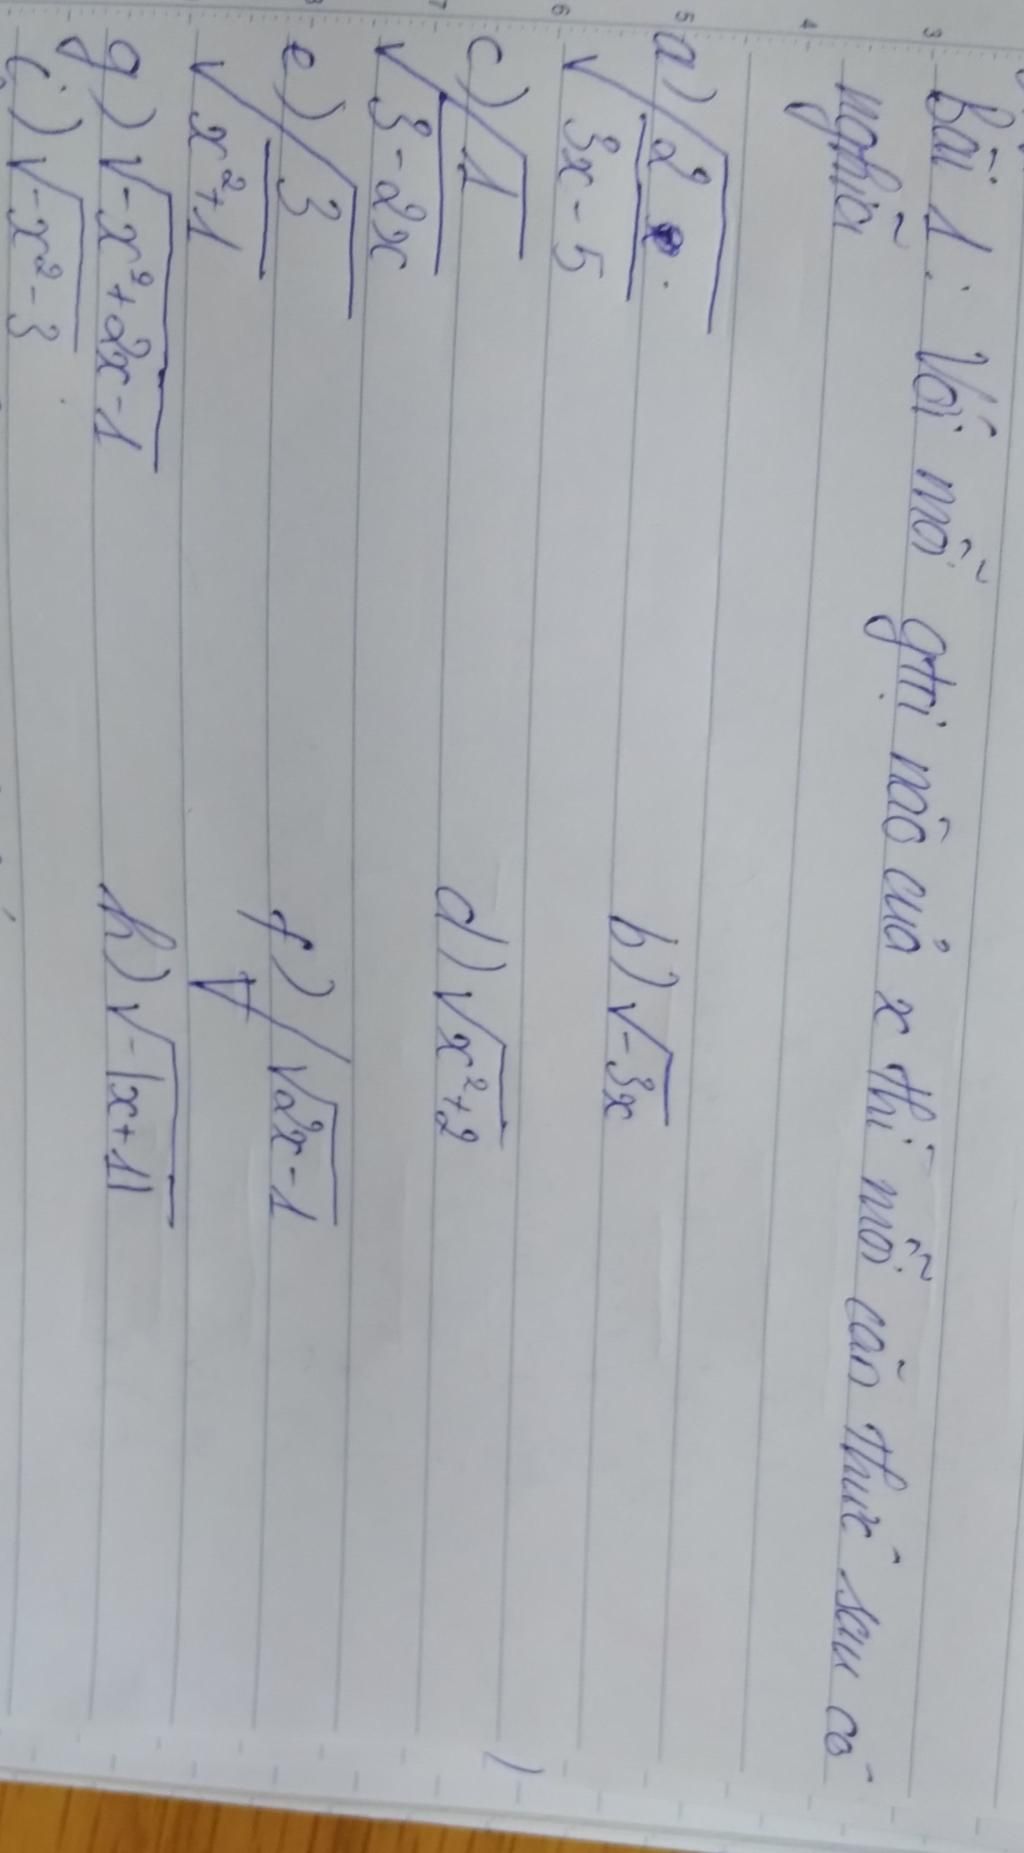 Bài 1: Với mỗi gtrị nào của x thì mỗi căn thức sau có
nghĩa
a) √(2/(3x-5))    b) √(-3x)
c) √(1/(3-2x))    d) √(x²+2)
e) √(3/(x²+1))    f) √(√(2x-1))
g) √(-x²+2x-1)    h) √(-|x+1|)
i) √(-x²-3)